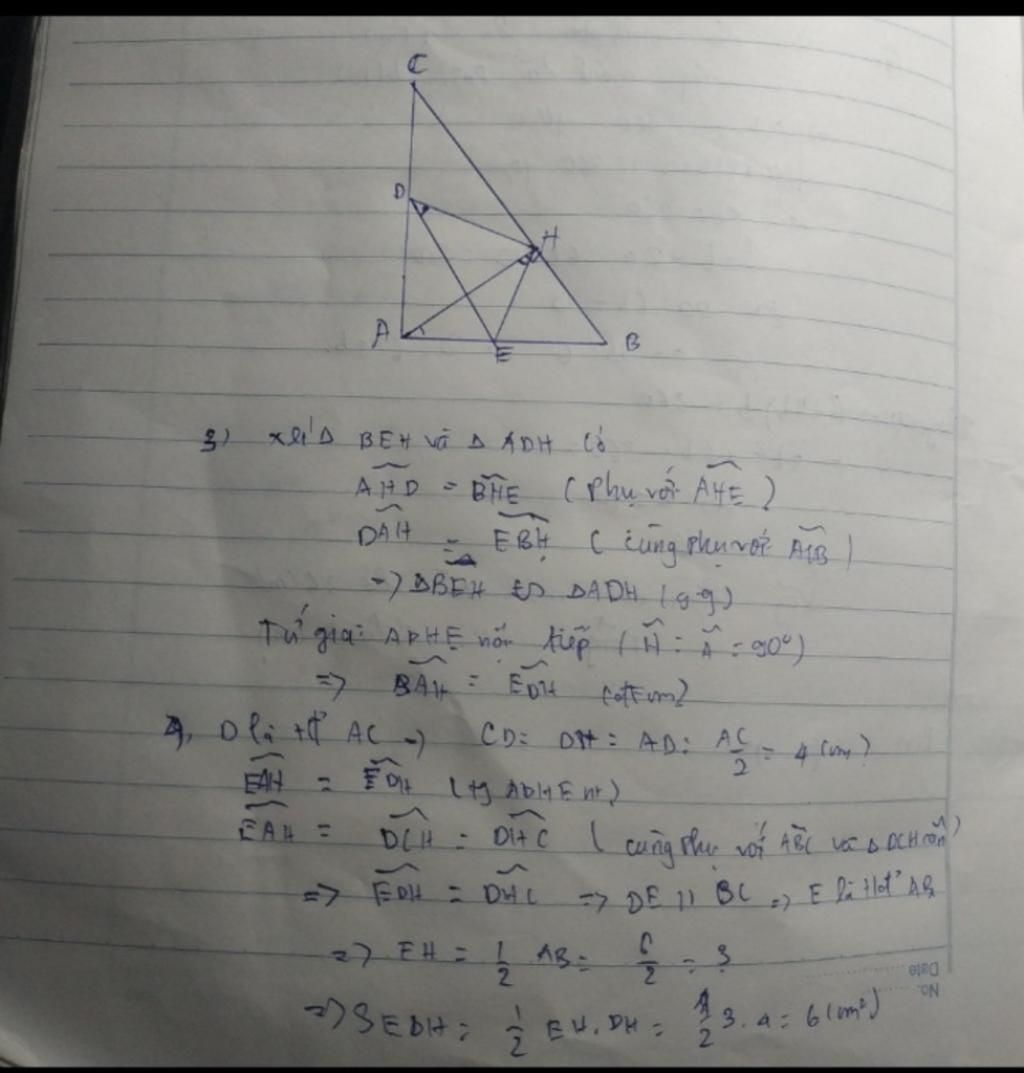 C
D
H
A
E
B
3) xét Δ BEH và Δ ADH có
AHD = BHE (Phụ với AHE)
DAH = EBH (cùng phụ với ACB)
=> ΔBEH ∽ ΔADH (g-g)
Tứ giác ADHE nội tiếp (H = A = 90°)
=> BAH = EDH (đfcm)
4, D là tđ AC => CD = DH = AD = AC/2 = 4 (cm)
EAH = EDH (tg ADHE nt)
EAH = DCH = DHC (cùng phụ với ABC và Δ DCH cân)
=> EDH = DHC => DE // BC => E là tđ AB
=> EH = 1/2 AB = 6/2 = 3
=> SEDH = 1/2 EH.DH = 1/2 3.4 = 6 (cm²)
Date
No.